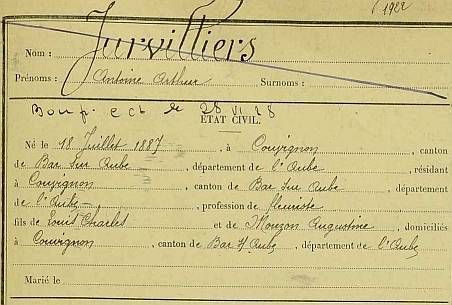 1922
Nom : Jurvilliers
Prénoms : Antoine Arthur Surnoms :
28 VI 28
ÉTAT CIVIL.
Né le 18 Juillet 1887, à Couvignon, canton
de Bar sur Aube, département de l'Aube, résidant
à Couvignon, canton de Bar sur Aube, département
de l'Aube, profession de
fils de Louis Charles et de Mouzon Augustine, domiciliés
à Couvignon, canton de Bar s/ Aube, département de l'Aube
Marié le